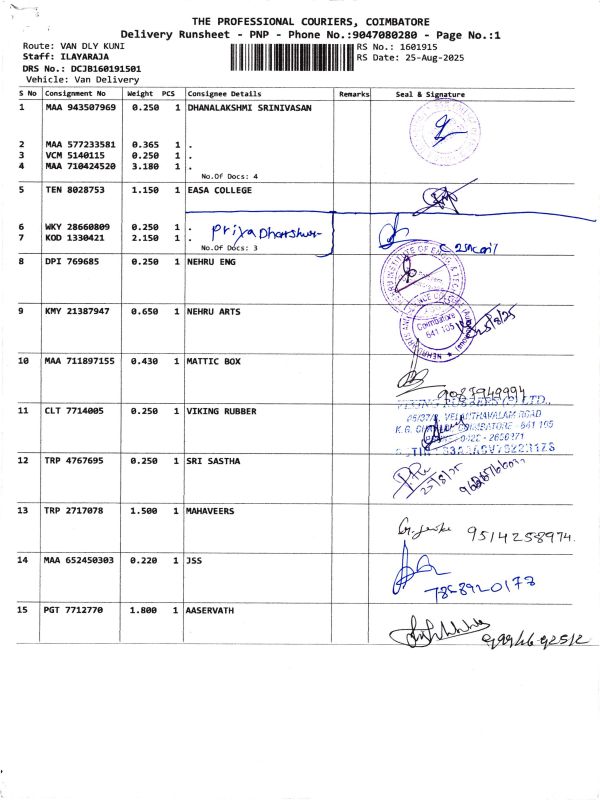 THE PROFESSIONAL COURIERS, COIMBATORE
Delivery Runsheet - PNP - Phone No.:9047080280 - Page No.:1
Route: VAN DLY KUNI
RS No.: 1601915
Staff: ILAYARAJA
RS Date: 25-Aug-2025
DRS No.: DCJB160191501
Vehicle: Van Delivery
S No Consignment No Weight PCS Consignee Details Remarks Seal & Signature
1 MAA 943507969 0.250 1 DHANALAKSHMI SRINIVASAN
2 MAA 577233581 0.365 1 .
3 VCM 5140115 0.250 1 .
4 MAA 710424520 3.180 1 .
No.Of Docs: 4
5 TEN 8028753 1.150 1 EASA COLLEGE
6 WKY 28660809 0.250 1 .
7 KOD 1330421 2.150 1 .
No.Of Docs: 3
8 DPI 769685 0.250 1 NEHRU ENG
9 KMY 21387947 0.650 1 NEHRU ARTS
Coimbatore
641 105
25/8/25
10 MAA 711897155 0.430 1 MATTIC BOX
11 CLT 7714005 0.250 1 VIKING RUBBER
12 TRP 4767695 0.250 1 SRI SASTHA
25/8/25
13 TRP 2717078 1.500 1 MAHAVEERS
9514258974.
14 MAA 652450303 0.220 1 JSS
7858920173
15 PGT 7712770 1.800 1 AASERVATH